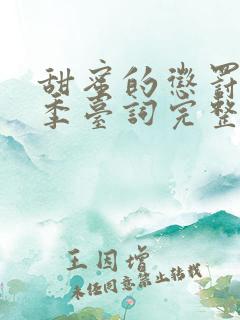 甜蜜的懲罰
季臺詞完整
王因增
未经同意禁止转载